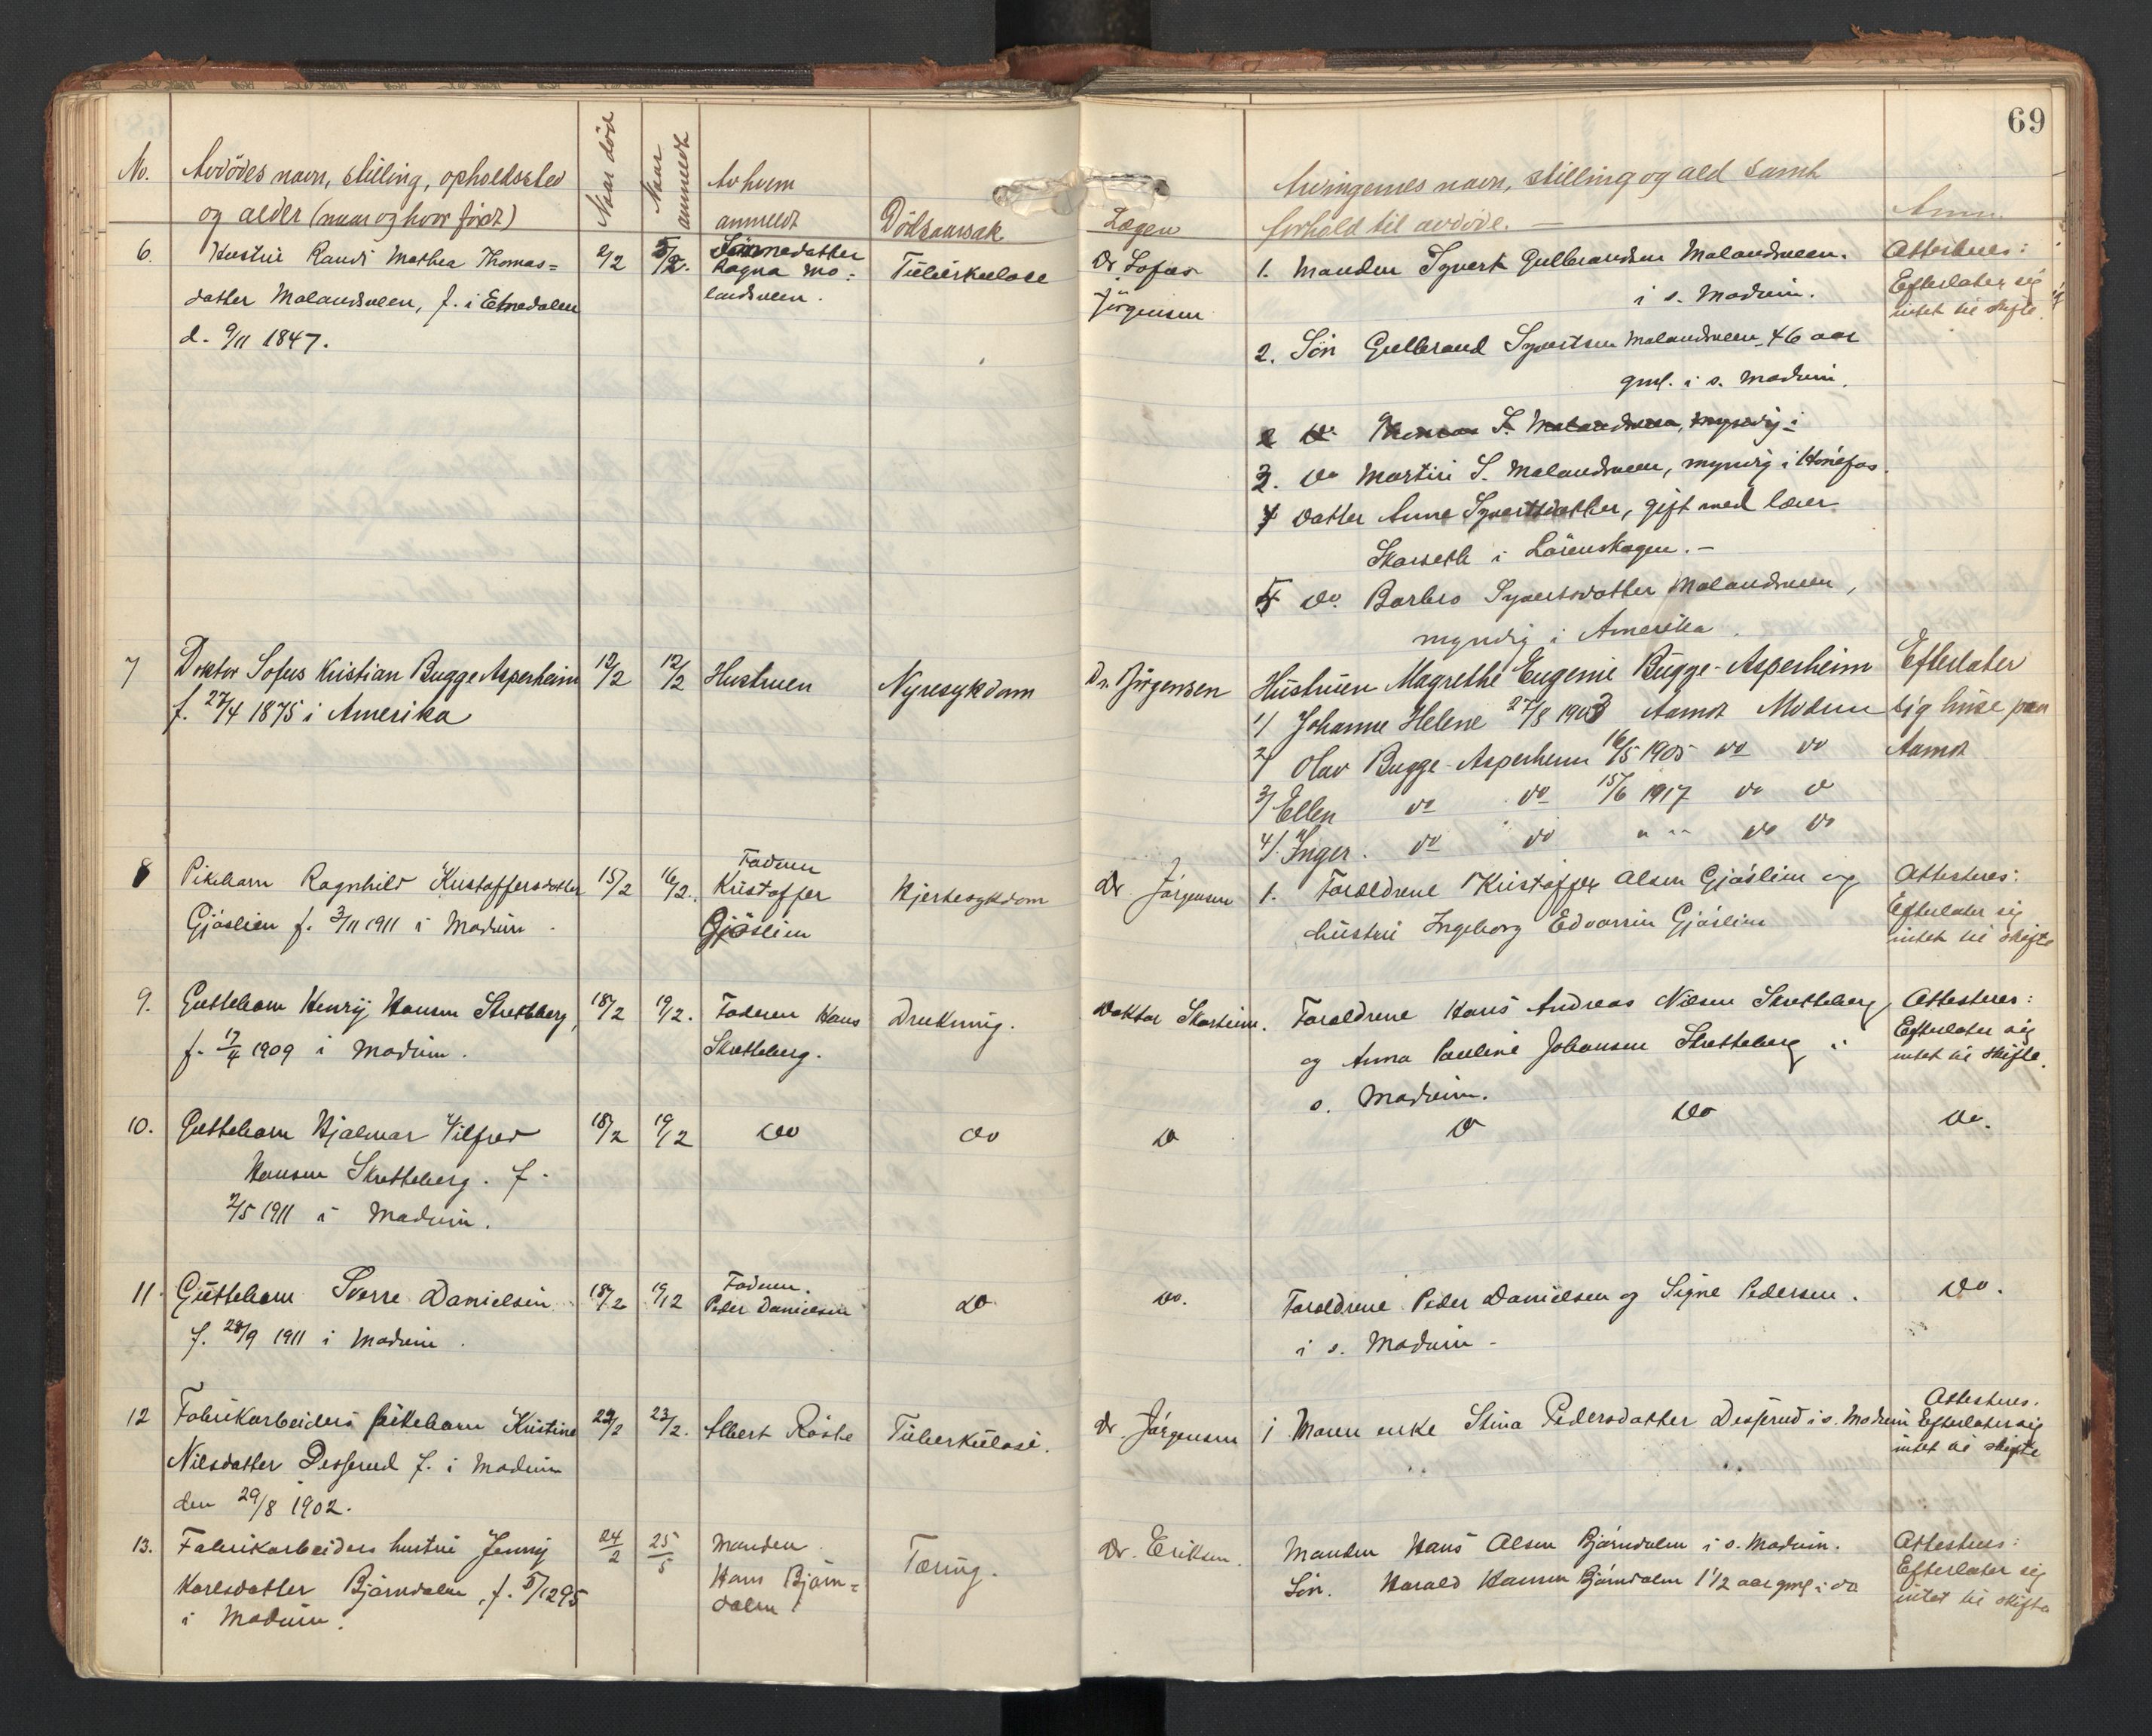 69
No.
Avdödes navn, stilling, opholdssted
og alder (naar og hvor født)
Naar død
Naar anmeldt
Av hvem
anmeldt
Dödsaarsak
Lægen
Arvingernes navn, stilling og ald samt
forhold til avdöde. —
Anm.
6.
Hustru Randi Mathea Thomas=
datter Molandsveen, f. i Etnedalen
d. 9/11 1847.
2/2
5/2.
Sönnedatter
Ragna Mo=
landsveen.
Tuberkulose
Dr Sofus
Jörgensen
1. Manden Syvert Gulbrandsen Molandsveen.
i s. Modum.
2. Sön Gulbrand Syvertsen Molandsveen, 46 aar
gml. i s. Modum.
3. Do Martin S. Molandsveen, myndig i Hönefos.
4 Datter Anne Syvertsdatter, gift med lærer
Skarseth i Lörenskogen. —
5 Do. Barbro Syvertsdatter Molandsveen,
myndig i Amerika.
Attesteres:
Efterlater sig
intet til skifte.
7
Doktor Sofus Kristian Bugge Asperheim
f. 27/4 1875 i Amerika
12/2
12/2
Hustruen
Nyresykdom
Dr. Jörgensen
Hustruen Magrethe Eugenie Bugge-Asperheim
1/ Johanne Helene 27/8 1903 Aamot Modum
2/ Olav Bugge-Asperheim 16/5 1905 do do
3/ Ellen do do 15/6 1917 do do
4/. Inger. do do " " do do
Efterlater
sig huse paa
Aamot
8
Pikebarn Ragnhild Kristoffersdatter
Gjöslien f. 3/11 1911 i Modum.
15/2
16/2.
Faderen
Kristoffer
Gjöslien
Hjertesykdom
Dr. Jörgensen
1. Foreldrene Kristoffer Olsen Gjöslien og
hustru Ingeborg Edvarsin Gjöslien
Attesteres:
Efterlater sig
intet til skifte
9.
Guttebarn Henrij Hansen Skretteberg,
f. 17/4 1909 i Modum.
18/2
19/2.
Faderen Hans
Skretteberg.
Drukning.
Doktor Skarheim.
Foreldrene Hans Andreas Nilsen Skretteberg
og Anna Pauline Johansen Skretteberg i
s. Modum.
Attesteres:
Efterlater sig
intet til skifte.
10.
Guttebarn Hjalmar Vilfred
Hansen Skretteberg. f.
2/5 1911 i Modum.
18/2
19/2
Do
Do
Do
Do Do
Do.
11.
Guttebarn Sverre Danielsen
f. 28/9 1911 i Modum.
18/2
19/2
Faderen.
Peder Danielsen
Do
Do.
Foreldrene Peder Danielsen og Signe Pedersen.
i s. Modum —
Do.
12
Fabrikarbeiders pikebarn Kristine
Nilsdatter Desserud f. i Modum
den 29/8 1902.
22/2
23/2.
Albert Röste
Tuberkulose.
Dr. Jörgensen
1 Moren enke Stina Pedersdatter Desserud i s. Modum
Attesteres.
Efterlater sig
intet til skifte
13.
Fabrikarbeiders hustru Jenny
Karlsdatter Björndalen, f. 5/12 95
i Modum.
24/2
25/5
Manden
Hans Björn=
dalen
Tæring.
Dr. Eriksen.
Manden Hans Olsen Björndalen i s. Modum.
Sön. Harald Hansen Björndalen 1 1/2 aar gml i do
Attesteres:
Efterlater sig
intet til skifte